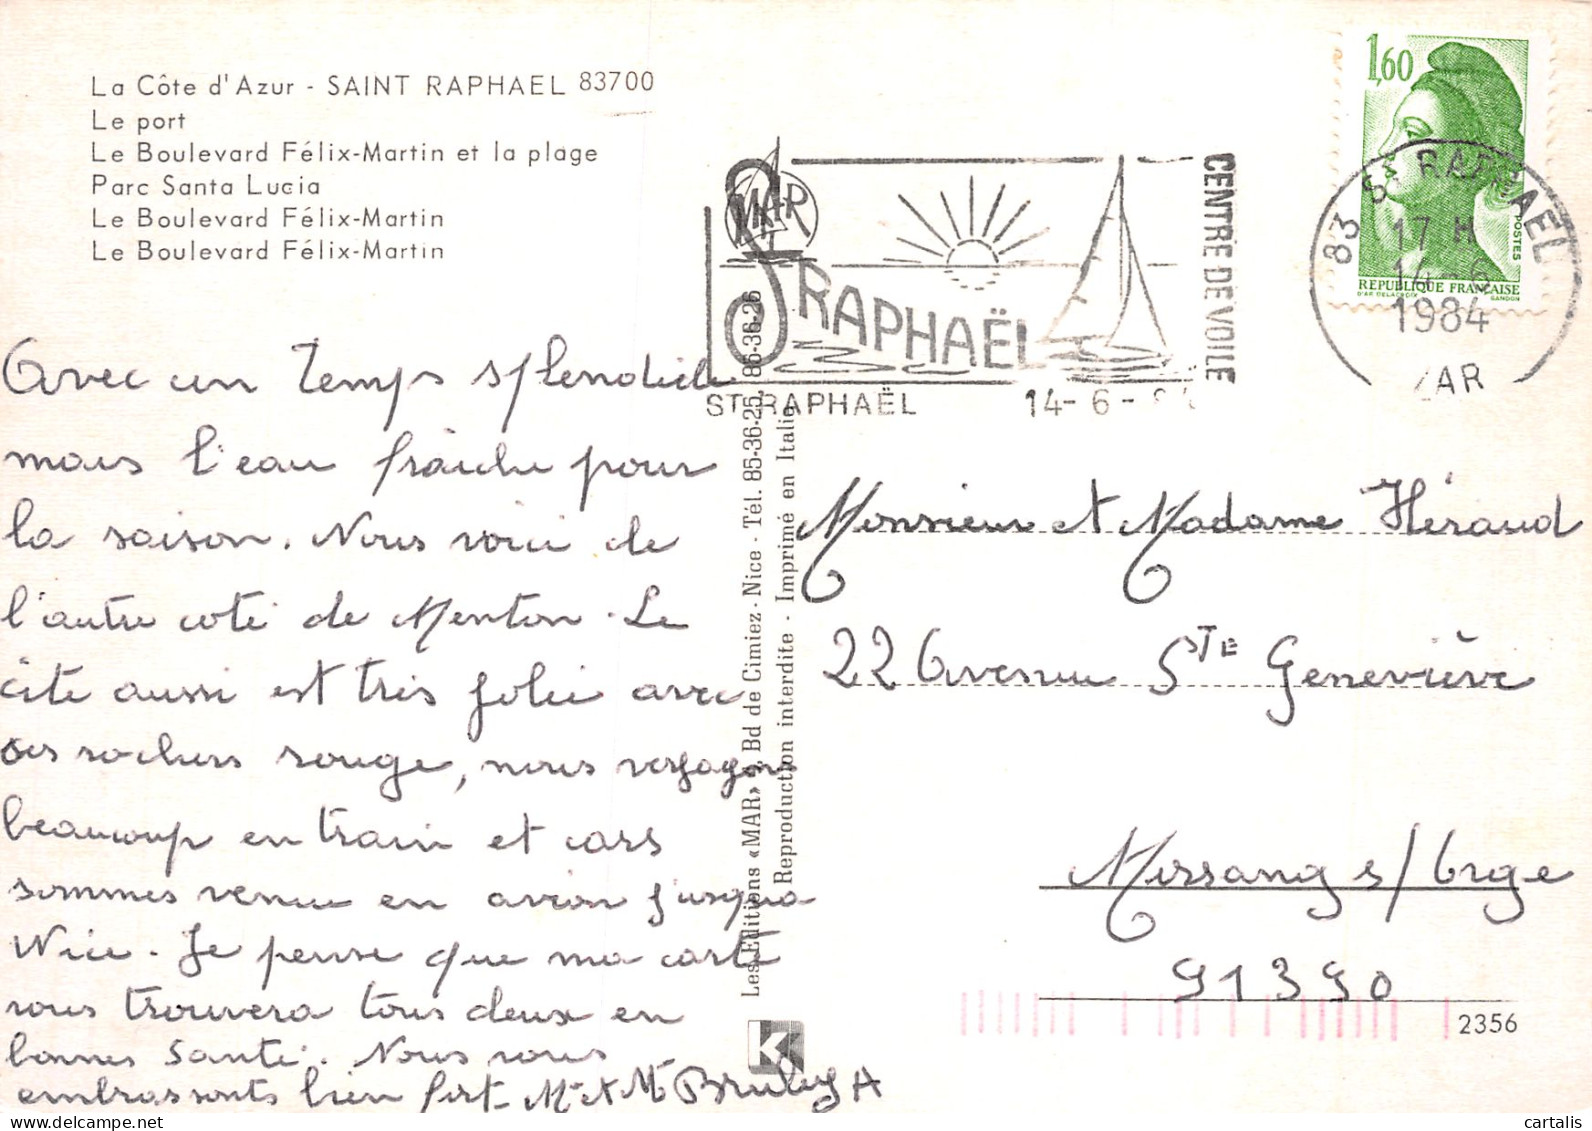 La Côte d'Azur - SAINT RAPHAEL 83700
Le port
Le Boulevard Félix-Martin et la plage
Parc Santa Lucia
Le Boulevard Félix-Martin
Le Boulevard Félix-Martin
Avec un temps splendide
mais l'eau fraîche pour
la saison. Nous voici de
l'autre coté de Menton. Le
côte aussi est très jolie avec
ses rochers rouge, nous voyageons
beaucoup en train et cars
sommes venue en avion jusqu'a
Nice. Je pense que ma carte
vous trouvera tous deux en
bonnes santé. Nous vous
embrassonts bien fort Mr et Me
Les Editions «MAR» Bd de Cimiez - Nice - Tél. 85-36-25, 85-36-26
Reproduction interdite - Imprimé en Italie
K
MAR
ST RAPHAËL
CENTRE DE VOILE
ST RAPHAËL 14-6-
1,60
POSTES
REPUBLIQUE FRANÇAISE
D'AP. DELACROIX GANDON
83 St RAPHAEL
17 H
14-6
1984
VAR
Monsieur et Madame Héraud
22 Avenue Ste Geneviève
Morsang s/Orge
91390
2356
cartalis